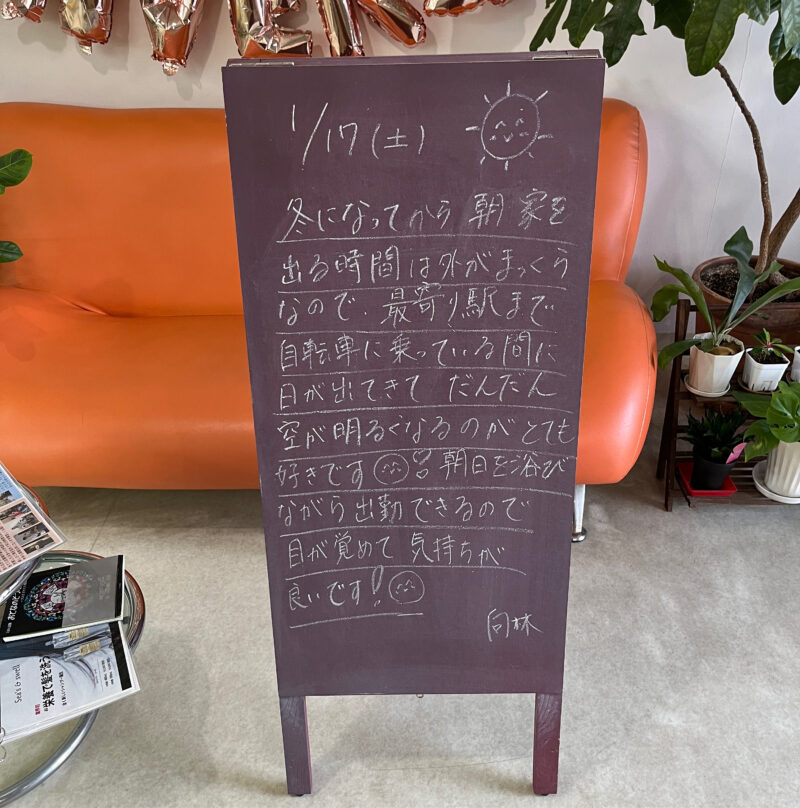 1/17(土)
冬になってから 朝 家を
出る時間は外がまっくら
なので、最寄り駅まで
自転車に乗っている間に
日が出てきて だんだん
空が明るくなるのがとても
好きです 朝日を浴び
ながら出勤できるので
目が覚めて 気持ちが
良いです!
向林
See's & swell
栄養で髪を洗う